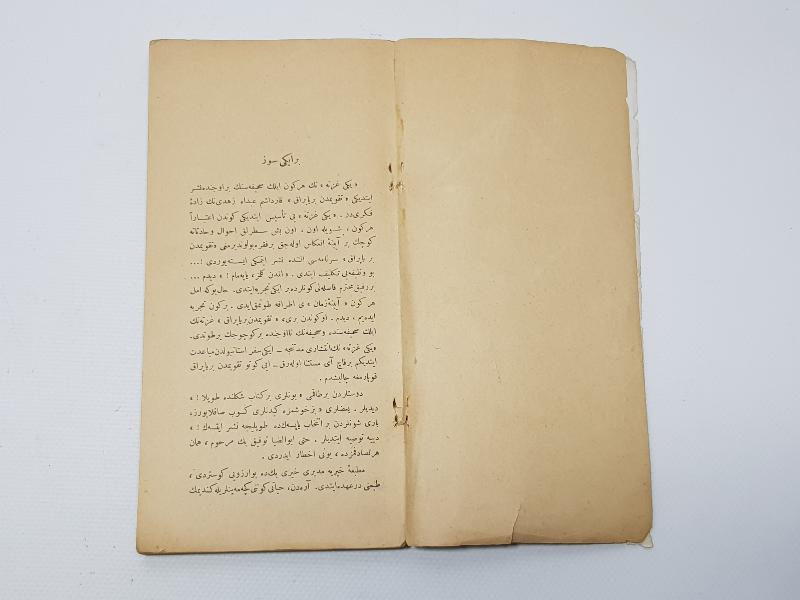 بر ایکی سوز
« یکی غزته » نك هركون ایلك صحیفه‌سنك بر اوجنده نشر
ایتدیکی « تقویمدن بریاپراق » قارداشم عبداء زهدی نك زادهٔ
فکری‌در . « یکی غزته » یی تأسیس ایتدیکی کوندن اعتباراً
هركون ، شویله اون ، اون بش سطرلق احوال و حادثاته
کوچك بر آیینهٔ انعکاس اوله‌جق بر فقره بولوندیرمنی « تقویمدن
بر یاپراق » سرنامه‌سی آلتنده نشر ایتمکی ایسته‌یوردی ! ...
بو وظیفه‌یی تکلیف ایتدی . « الندن کلز ، یاپه‌مام ! » دیدم ...
بر رفیق محترم فاصله‌لی کونلرده بر ایکی تجربه ایتدی . حال‌بوکه امل
هركون « آیینهٔ زمان » ی اطرافه طوتمق‌ایدی . بركون تجربه
ایده‌یم ، دیدم . اوکوندن بری ، « تقویمدن بریاپراق » غزته‌نك
ایلك صحیفه‌سنده و صحیفه‌نك تا اوجنده بر کوچوجك یر طوتدی.
« یکی غزته » نك انتشاری مدتنجه ــ ایکی سفر استانبولدن مباعدت
ایتدیکم برقاچ آی مستثنا اوله‌رق ــ ایی کوتو تقویمدن بریاپراق
قوپارمغه چالیشدم .
دوستاردن بر طاقمی « بونلری بر کتاب شکلنده طوپلا ! »
دیدیلر . بعضلری « بز خوشمزه کیدنلری کسوب صاقلایورز ،
باری شونلردن بر انتخاب یاپسه‌ك‌ده طوپلیجه نشر ایتسه‌ك ! »
دییه توصیه ایتدیلر . حتی ابوالضیا توفیق بك مرحوم ، همان
هر تصادفمزده ، بونی اخطار ایدردی .
مطبعهٔ خیریه مدیری خیری بك‌ده بو آرزویی کوستردی ،
طبعنی درعهده ایتدی . آره‌دن ، حیاتی کوتی کیمه‌مینلریله کندیمك